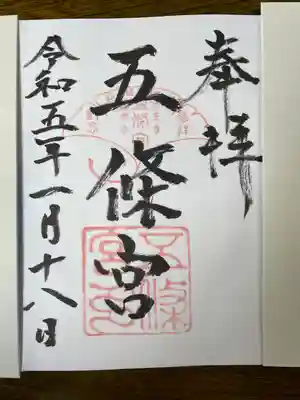 奉拝
五條宮
五條宮印
令和五年一月十八日